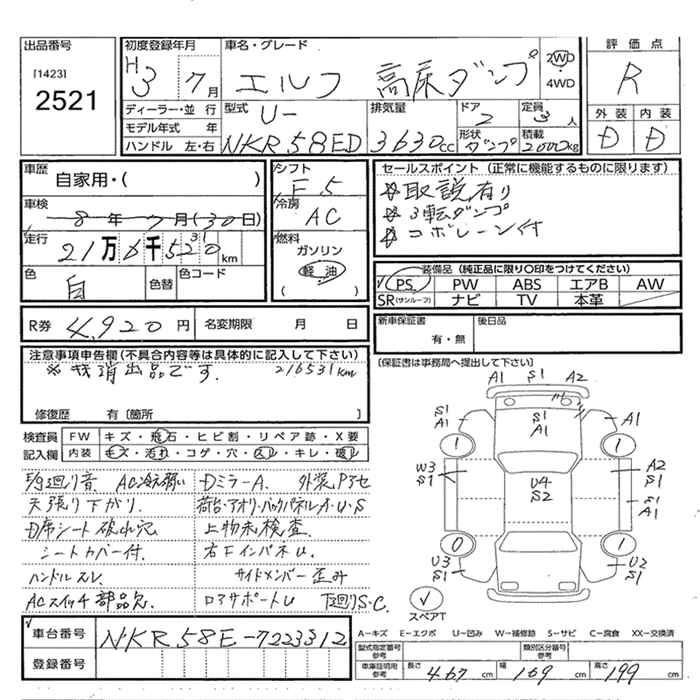 出品番号
[1423]
2521
初度登録年月
H3 7月
車名・グレード
エルフ 高床ダンプ
2WD
・
4WD
評価点
R
ディーラー・並行
モデル年式 年
ハンドル 左・右
型式 U-
NKR58ED
排気量
3630cc
ドア
2
形状
ダンプ
定員
3人
積載
2000kg
外装 内装
D D
車歴
自家用・( )
車検
8年7月(30日)
走行
21万6千5 0km
色
白
色替
色コード
シフト
F5
冷房
AC
燃料
ガソリン
軽油
( )
セールスポイント (正常に機能するものに限ります)
※取説有り
※3転ダンプ
※コボレーン付
装備品 (純正品に限り○印をつけてください)
PS PW ABS エアB AW
SR(サンルーフ) ナビ TV 本革
R券 4,920円
名変期限 月 日
新車保証書
有・無
後日品
(保証書は事務局へ提出して下さい)
注意事項申告欄(不具合内容等は具体的に記入して下さい)
※抹消出品です. 216531km
修復歴 有〔箇所 〕
検査員 FW キズ・飛石・ヒビ割・リペア跡・X要
記入欄 内装 キズ・汚れ・コゲ・穴・スレ・キレ・破レ
下廻り音 AC冷弱い DミラーA. 外装Pアセ
天張り下がり. 荷台・アオリ・バックパネルA・U・S
D席シート破れ穴 上物未検査.
シートカバー付. 右FインパネU.
ハンドルスレ サイドメンバー歪み
ACスイッチ部品欠. ロアサポートU 下廻りS・C.
A1 S1 A2
S1
A1
S1
A1
A1
1 1
W3
S1
U4
S2
A2
S1
S1
A1
0 1
U3
S1
U2
S1
スペアT
車台番号 NKR58E-7223312
登録番号
A-キズ E-エクボ U-凹み W-補修跡 S-サビ C-腐食 XX-交換済
型式指定番号
参考
類別区分番号
参考
車庫証明用
参考
長さ 467cm 幅 169cm 高さ 199cm